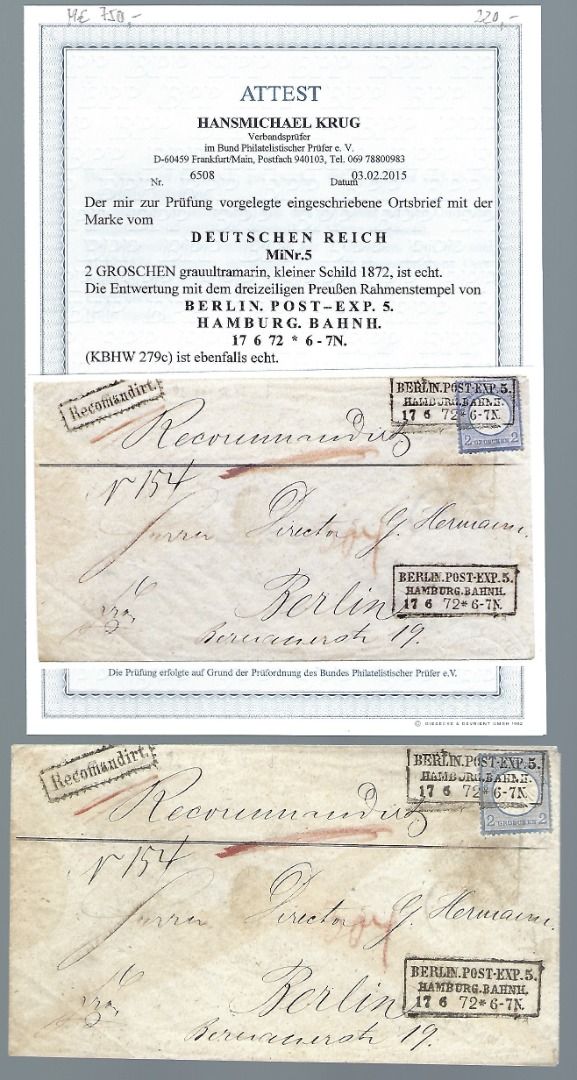 M€ 750,-
220,-
ATTEST
HANSMICHAEL KRUG
Verbandsprüfer
im Bund Philatelistischer Prüfer e. V.
D-60459 Frankfurt/Main, Postfach 940103, Tel. 069 78800983
Nr. 6508 Datum 03.02.2015
Der mir zur Prüfung vorgelegte eingeschriebene Ortsbrief mit der
Marke vom
DEUTSCHEN REICH
MiNr.5
2 GROSCHEN grauultramarin, kleiner Schild 1872, ist echt.
Die Entwertung mit dem dreizeiligen Preußen Rahmenstempel von
BERLIN. POST–EXP. 5.
HAMBURG. BAHNH.
17 6 72 * 6 - 7N.
(KBHW 279c) ist ebenfalls echt.
Recomandirt.
BERLIN.POST-EXP.5.
HAMBURG.BAHNH.
17 6 72* 6-7N.
2 GROSCHEN 2
Recommandirt
N 154
Herrn Director G. Hermann.
Berlin
BERLIN.POST-EXP.5.
HAMBURG.BAHNH.
17 6 72* 6-7N.
19.
Die Prüfung erfolgte auf Grund der Prüfordnung des Bundes Philatelistischer Prüfer e.V.
© GIESECKE & DEVRIENT GMBH 1992
Recomandirt.
BERLIN.POST-EXP.5.
HAMBURG.BAHNH.
17 6 72* 6-7N.
2 GROSCHEN 2
Recommandirt
N 154
Herrn Director G. Hermann.
Berlin
BERLIN.POST-EXP.5.
HAMBURG.BAHNH.
17 6 72* 6-7N.
19.